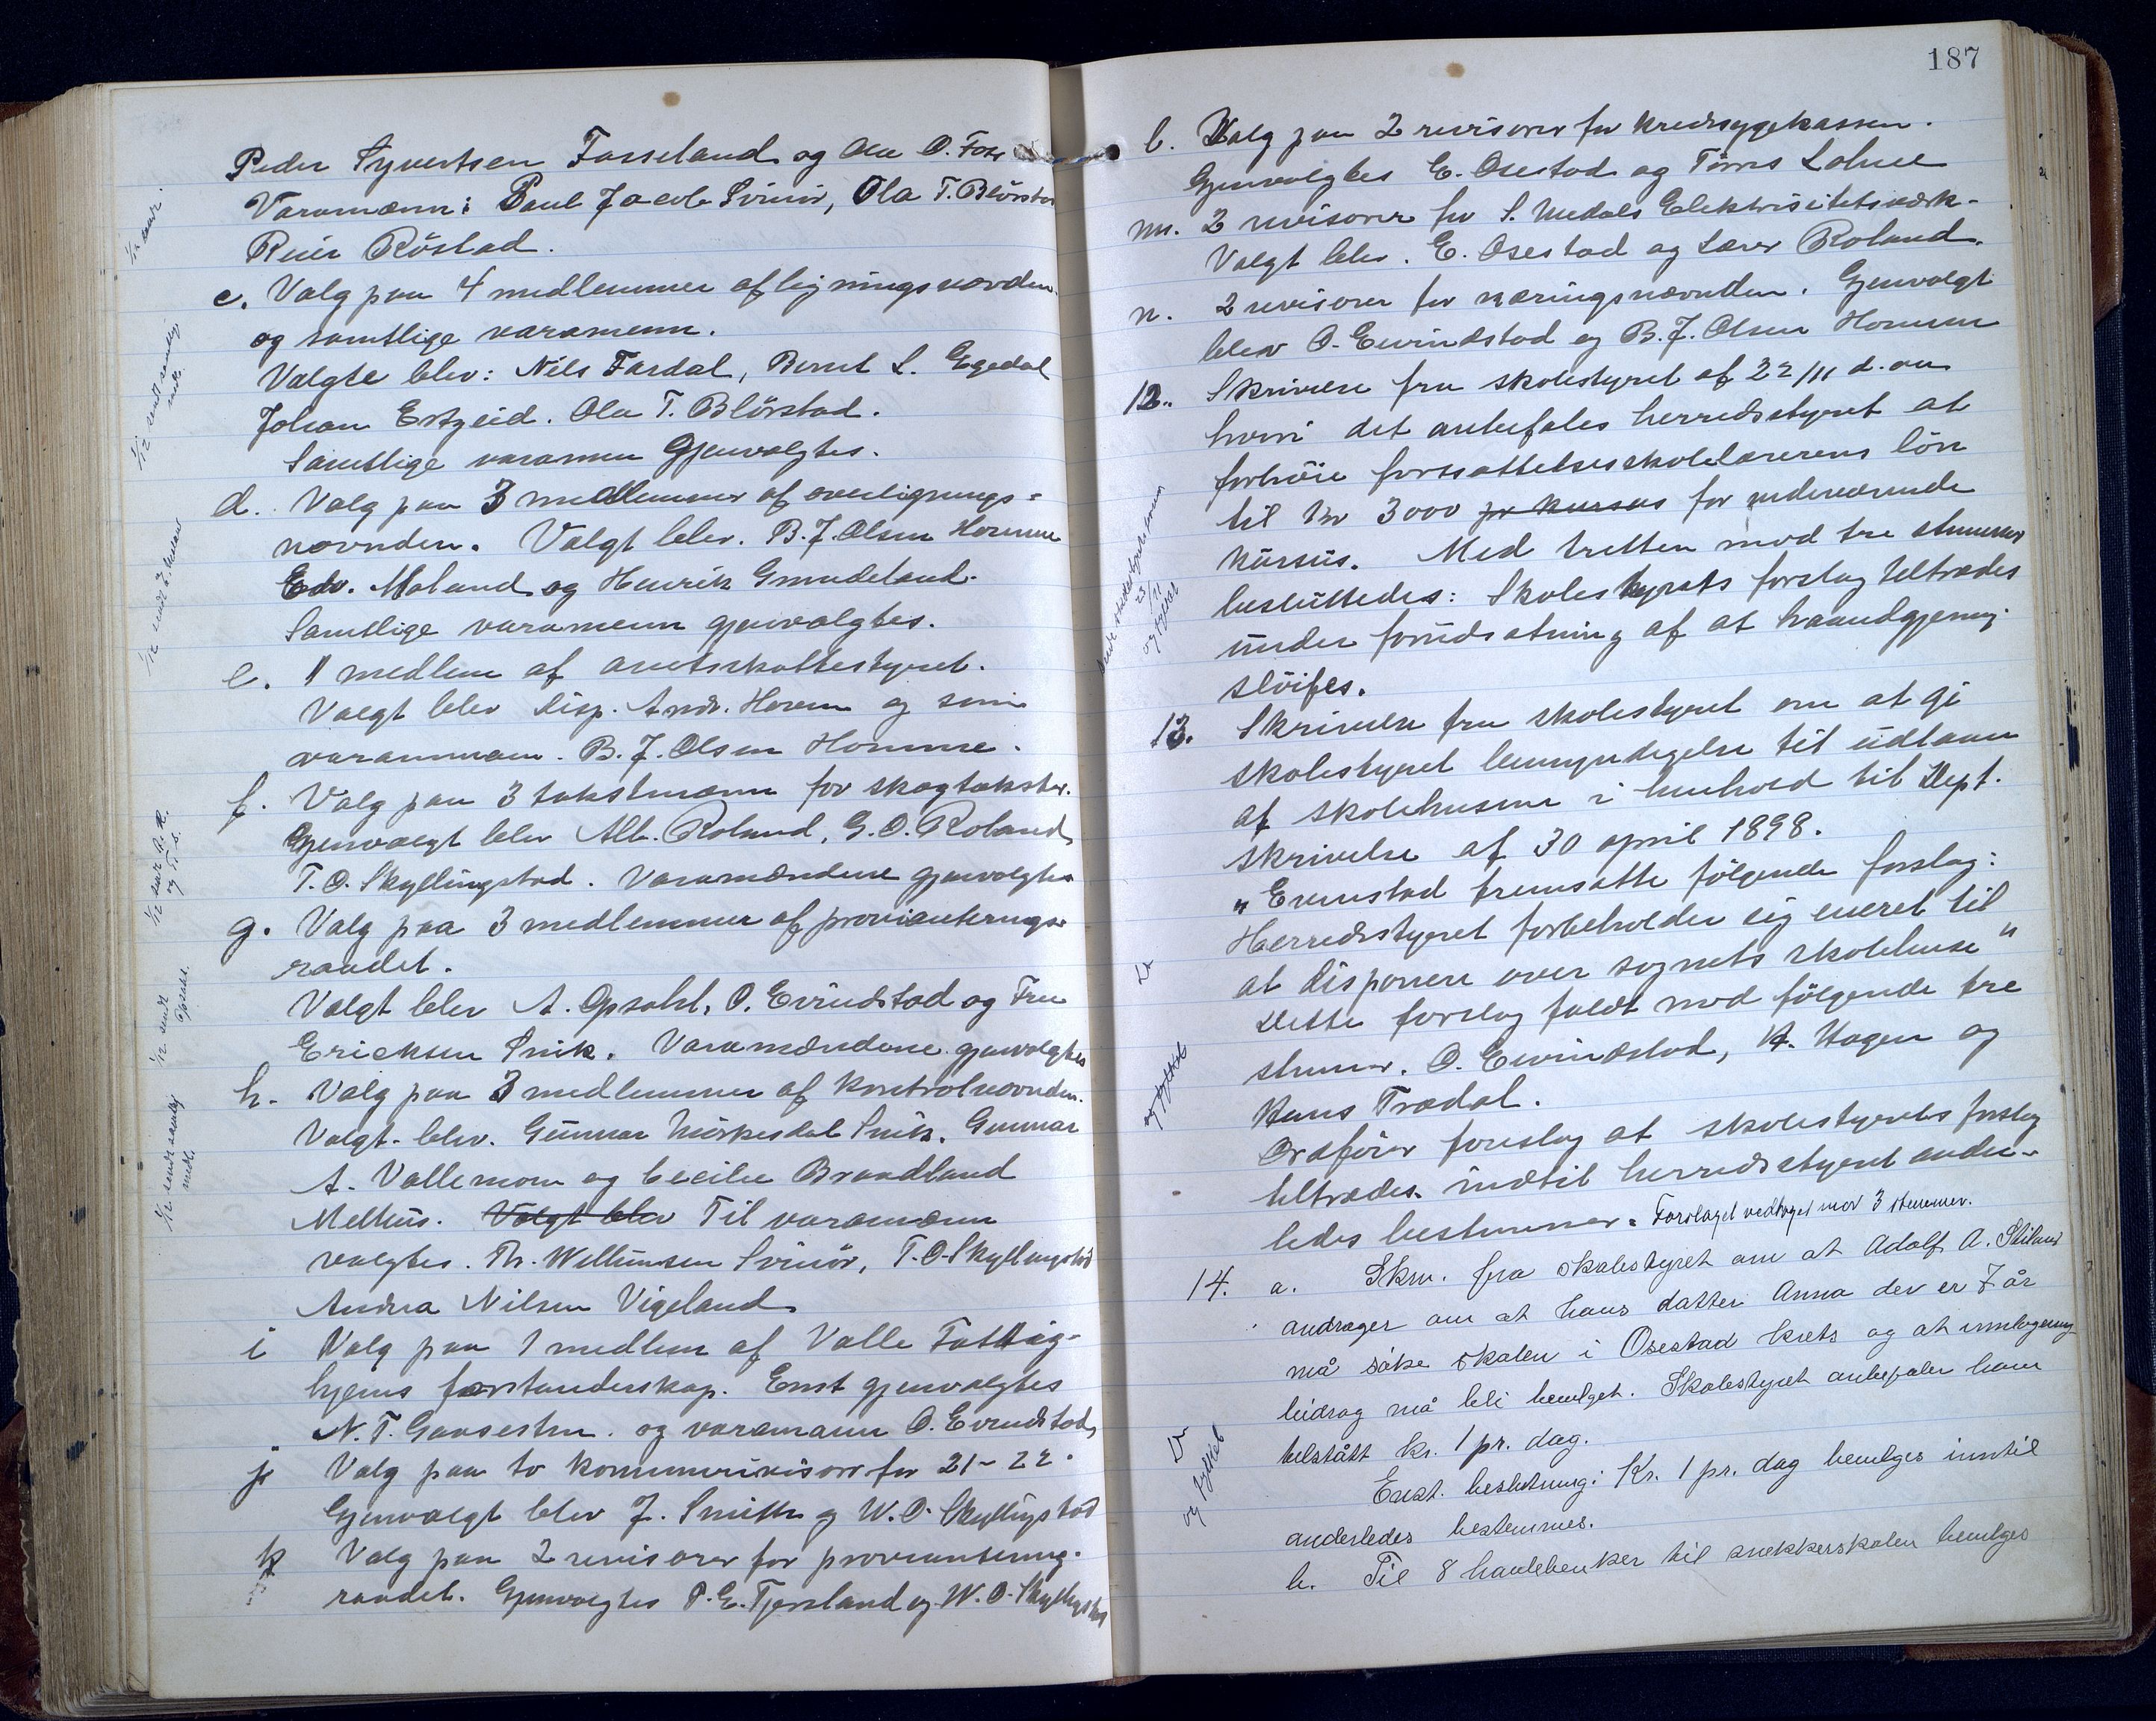 Peder Syvertsen Fasseland og Ola O. Foss
Varamænn: Paul Jacob Svinör, Ola T. Blörstad
Reier Röstad.
c. Valg paa 4 medlemmer af ligningsnævnden
og samtlige varamenn.
Valgte blev: Nils Fardal, Bernt L. Egedal
Johan Erkjeid. Ola T. Blörstad.
Samtlige varamen gjenvalgtes.
d. Valg paa 3 medlemmer af overlignings-
nævnden. Valgt blev. B. J. Olsen Homme
Edv. Møland og Henrik Grundeland.
Samtlige varamenn gjenvalgtes.
e. 1 medlem af amtsskattestyret.
Valgt blev Disp. Andr. Hoven og som
varammann. B. J. Olsen Homme.
f. Valg paa 3 takstmænn for skogtakster.
Gjenvalgt blev Alb. Roland, G. O. Roland
T. O. Skyllingstad. Varamændene gjenvalgtes
g. Valg paa 3 medlemmer af provianterings-
raadet.
Valgt blev A. Opsahl, O. Evindstad og Fru
Ericksen Snik. Varamændene gjenvalgtes
h. Valg paa 3 medlemmer af kontrolnævnden.
Valgt blev. Gunnar Mörkesdal Snik. Gunnar
A. Vallemom og Cecilie Brandland
Melhus. Valgt blev Til varamænn
valgtes. Th. Willumsen Svinör, T. O. Skyllingstad
Andrea Nilsen Vigeland
i Valg paa 1 medlem af Valle Fattig-
hjems forstanderskap. Enst gjenvalgtes
N. T. Gaasestein. og varamann O. Evindstad
j Valg paa to kommunerivisorer for 21-22.
Gjenvalgt blev J. Smith og W. O. Skyllingstad
k Valg paa 2 revisorer for provianterings-
raadet. Gjenvalgtes P. E. Tjorsland og W. O. Skyllingstad
1/12 sendt.
1/12 sendt samtlig.
medl.
1/12 sendt
1/12 sendt A. R.
og T. S.
1/12 sendt
Opsahl.
1/12 sendt samtlig
medl.
187
l. Valg paa 2 revisorer for kredssygekassen.
Gjenvalgtes E. Osestad og Tönnes Lohne
m. 2 revisorer for S. Undals Elektrisitetsværk-
Valgt blev. E. Osestad og Lærer Roland.
n. 2 revisorer for næringsnævnden. Gjenvalgt
blev O. Eevindstad og B. J. Olsen Homme
12. Skrivelse fra skolestyret af 22/11 d. aa
hvori det anbefales herredsstyret at
forhöie fortsættelsesskolelærerens lön
til kr 3000 pr kursus for inderværende
kursus. Med tretten mod tre stemmer
besluttedes: Skolestyrets forslag tiltrædes
under forudsætning af at haandgjerning
slöifes.
13. Skrivelse fra skolestyret om at gi
skolestyret bemyndigelse til udlaan
af skolehusene i henhold til Dept.
skrivelse af 30 april 1898.
"Evenstad fremsatte fölgende forslag:
Herredsstyret forbeholder sig eneret til
at disponere over sognets skolehuse"
Dette forslag faldt mod fölgende tre
stemmer. O. Ewindstad, A. Hagen og
Hans Trædal.
Ordförer foreslog at skolestyrets forslag
tiltrædes indtil herredsstyret ander-
ledes bestemmer. Forslaget vedtaget mod 3 stemmer.
14. a. Skrv. fra skolestyret om at Adolf A. Stiland
andrager om at hans datter Anna der er 7 år
må söke skolen i Osestad krets og at innlogering
bidrag må bli bevilget. Skolestyret anbefaler ham
tilstått kr. 1 pr. dag.
Enst. beslutning: Kr. 1 pr. dag bevilges inntil
anderledes bestemmes.
b. Til 8 havlebenker til snekkerskolen bevilges
23/11
og fylket
og fylket
og fylket